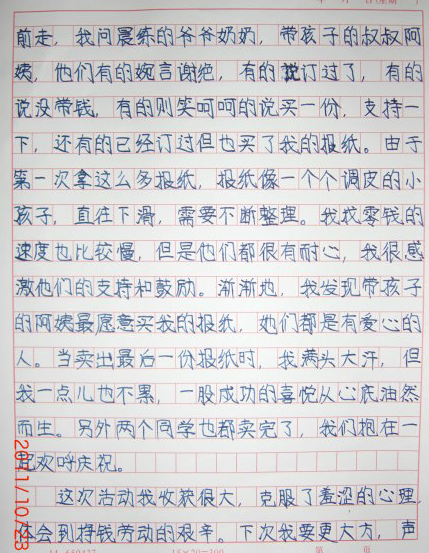 前走，我问晨练的爷爷奶奶，带孩子的叔叔阿
姨，他们有的婉言谢绝，有的说订过了，有的
说没带钱，有的则笑呵呵的说买一份，支持一
下，还有的已经订过但也买了我的报纸。由于
第一次拿这么多报纸，报纸像一个个调皮的小
孩子，直往下滑，需要不断整理。我找零钱的
速度也比较慢，但是他们都很有耐心，我很感
激他们的支持和鼓励。渐渐地，我发现带孩子
的阿姨最愿意买我的报纸，她们都是有爱心的
人。当卖出最后一份报纸时，我满头大汗，但
我一点儿也不累，一股成功的喜悦从心底油然
而生。另外两个同学也都卖完了，我们抱在一
起欢呼庆祝。
这次活动我收获很大，克服了羞涩的心理，
体会到挣钱劳动的艰辛。下次我要更大方，声
2011/10/23
15×20=300
第 页